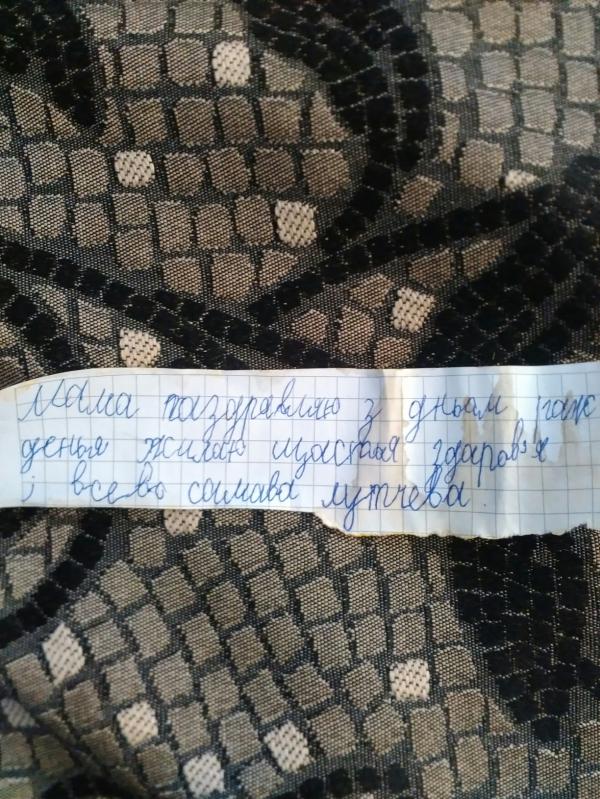 Мама паздравляю з дньом раж
денья жилаю щастья здаровя
і всево самава лутчева.